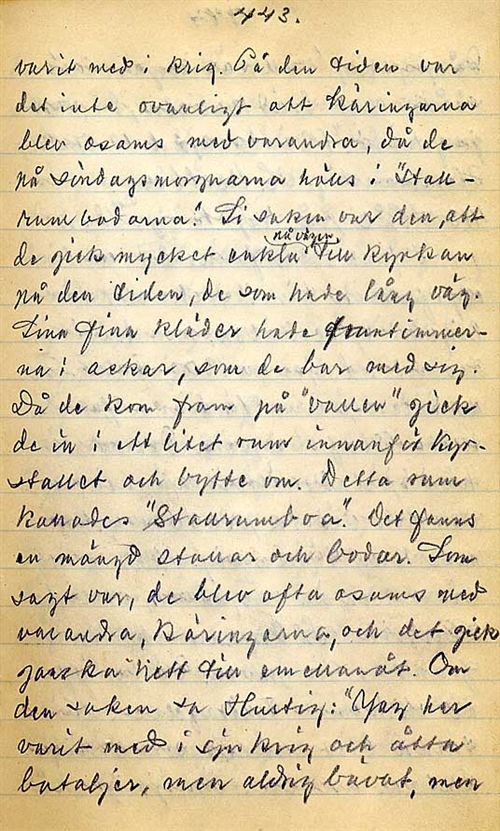 443.
varit med i krig. På den tiden var
det inte ovanligt att käringarna
blev osams med varandra, då de
på söndagsmorgnarna hölls i "Stall-
rumbodarna". Si saken var den, att
de gick mycket enkla på vägen till kyrkan
på den tiden, de som hade lång väg.
Sina fina kläder hade fruntimmer-
na i askar, som de bar med sig.
Då de kom fram på "vallen" gick
de in i ett litet rum innanför kyr-
stallet och bytte om. Detta rum
kallades "Stallrumboa". Det fanns
en mängd stallar och bodar. Som
sagt var, de blev ofta osams med
varandra, käringarna, och det gick
ganska hett till emellanåt. Om
den saken sa Hurtig: "Jag har
varit med i sju krig och åtta
bataljer, men aldrig bävat, men